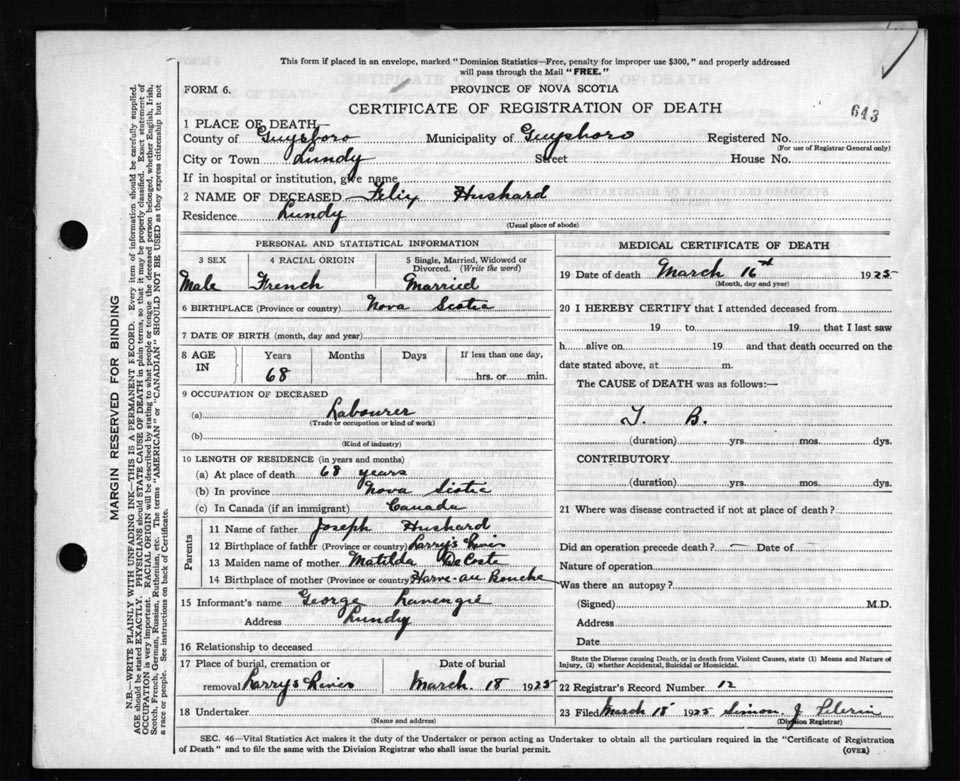 This form if placed in an envelope, marked "Dominion Statistics—Free, penalty for improper use $300," and properly addressed
will pass through the Mail "FREE."
FORM 6.
PROVINCE OF NOVA SCOTIA
CERTIFICATE OF REGISTRATION OF DEATH
643
1 PLACE OF DEATH—
County of Guysboro Municipality of Guysboro Registered No.
(For use of Registrar General only)
City or Town Lundy Street House No.
If in hospital or institution, give name
2 NAME OF DECEASED Felix Hushard
Residence Lundy
(Usual place of abode)
PERSONAL AND STATISTICAL INFORMATION
3 SEX 4 RACIAL ORIGIN 5 Single, Married, Widowed or
Divorced. (Write the word)
Male French Married
6 BIRTHPLACE (Province or country) Nova Scotia
7 DATE OF BIRTH (month, day and year)
8 AGE IN Years Months Days If less than one day,
68 hrs. or min.
9 OCCUPATION OF DECEASED
(a) Labourer
(Trade or occupation or kind of work)
(b)
(Kind of industry)
10 LENGTH OF RESIDENCE (in years and months)
(a) At place of death 68 years
(b) In province Nova Scotia
(c) In Canada (if an immigrant) Canada
Parents
11 Name of father Joseph Hushard
12 Birthplace of father (Province or country) Larry's River
13 Maiden name of mother Matilda DeCoste
14 Birthplace of mother (Province or country) Harve-au Bouche
15 Informant's name George
Address Lundy
16 Relationship to deceased
17 Place of burial, cremation or Date of burial
removal Larry's River March 18 1925
18 Undertaker
(Name and address)
MEDICAL CERTIFICATE OF DEATH
19 Date of death March 16th 1925
(Month, day and year)
20 I HEREBY CERTIFY that I attended deceased from
19 to 19 that I last saw
h alive on 19 and that death occurred on the
date stated above, at m.
The CAUSE of DEATH was as follows:—
T. B.
(duration) yrs. mos. dys.
CONTRIBUTORY
(duration) yrs. mos. dys.
21 Where was disease contracted if not at place of death?
Did an operation precede death? — Date of —
Nature of operation
Was there an autopsy?
(Signed) M.D.
Address
Date
State the Disease causing Death, or in death from Violent Causes, state (1) Means and Nature of
Injury, (2) whether Accidental, Suicidal or Homicidal.
22 Registrar's Record Number 12
23 Filed March 18 1925 Simon J Pelerin
(Division Registrar)
SEC. 46—Vital Statistics Act makes it the duty of the Undertaker or person acting as Undertaker to obtain all the particulars required in the "Certificate of Registration
of Death" and to file the same with the Division Registrar who shall issue the burial permit.
(OVER)
MARGIN RESERVED FOR BINDING
N.B.—WRITE PLAINLY WITH UNFADING INK—THIS IS A PERMANENT RECORD. Every item of information should be carefully supplied.
AGE should be stated EXACTLY. PHYSICIANS should STATE CAUSE OF DEATH in plain terms, so that it may be properly classified. Exact statement of
OCCUPATION is very important. RACIAL ORIGIN will be described by stating to what people or tongue the deceased person belonged, whether English, Irish,
Scotch, French, German, Russian, Ruthenian, etc. The terms "AMERICAN" or "CANADIAN" SHOULD NOT BE USED as they express citizenship but not
a race or people. See instructions on back of Certificate.